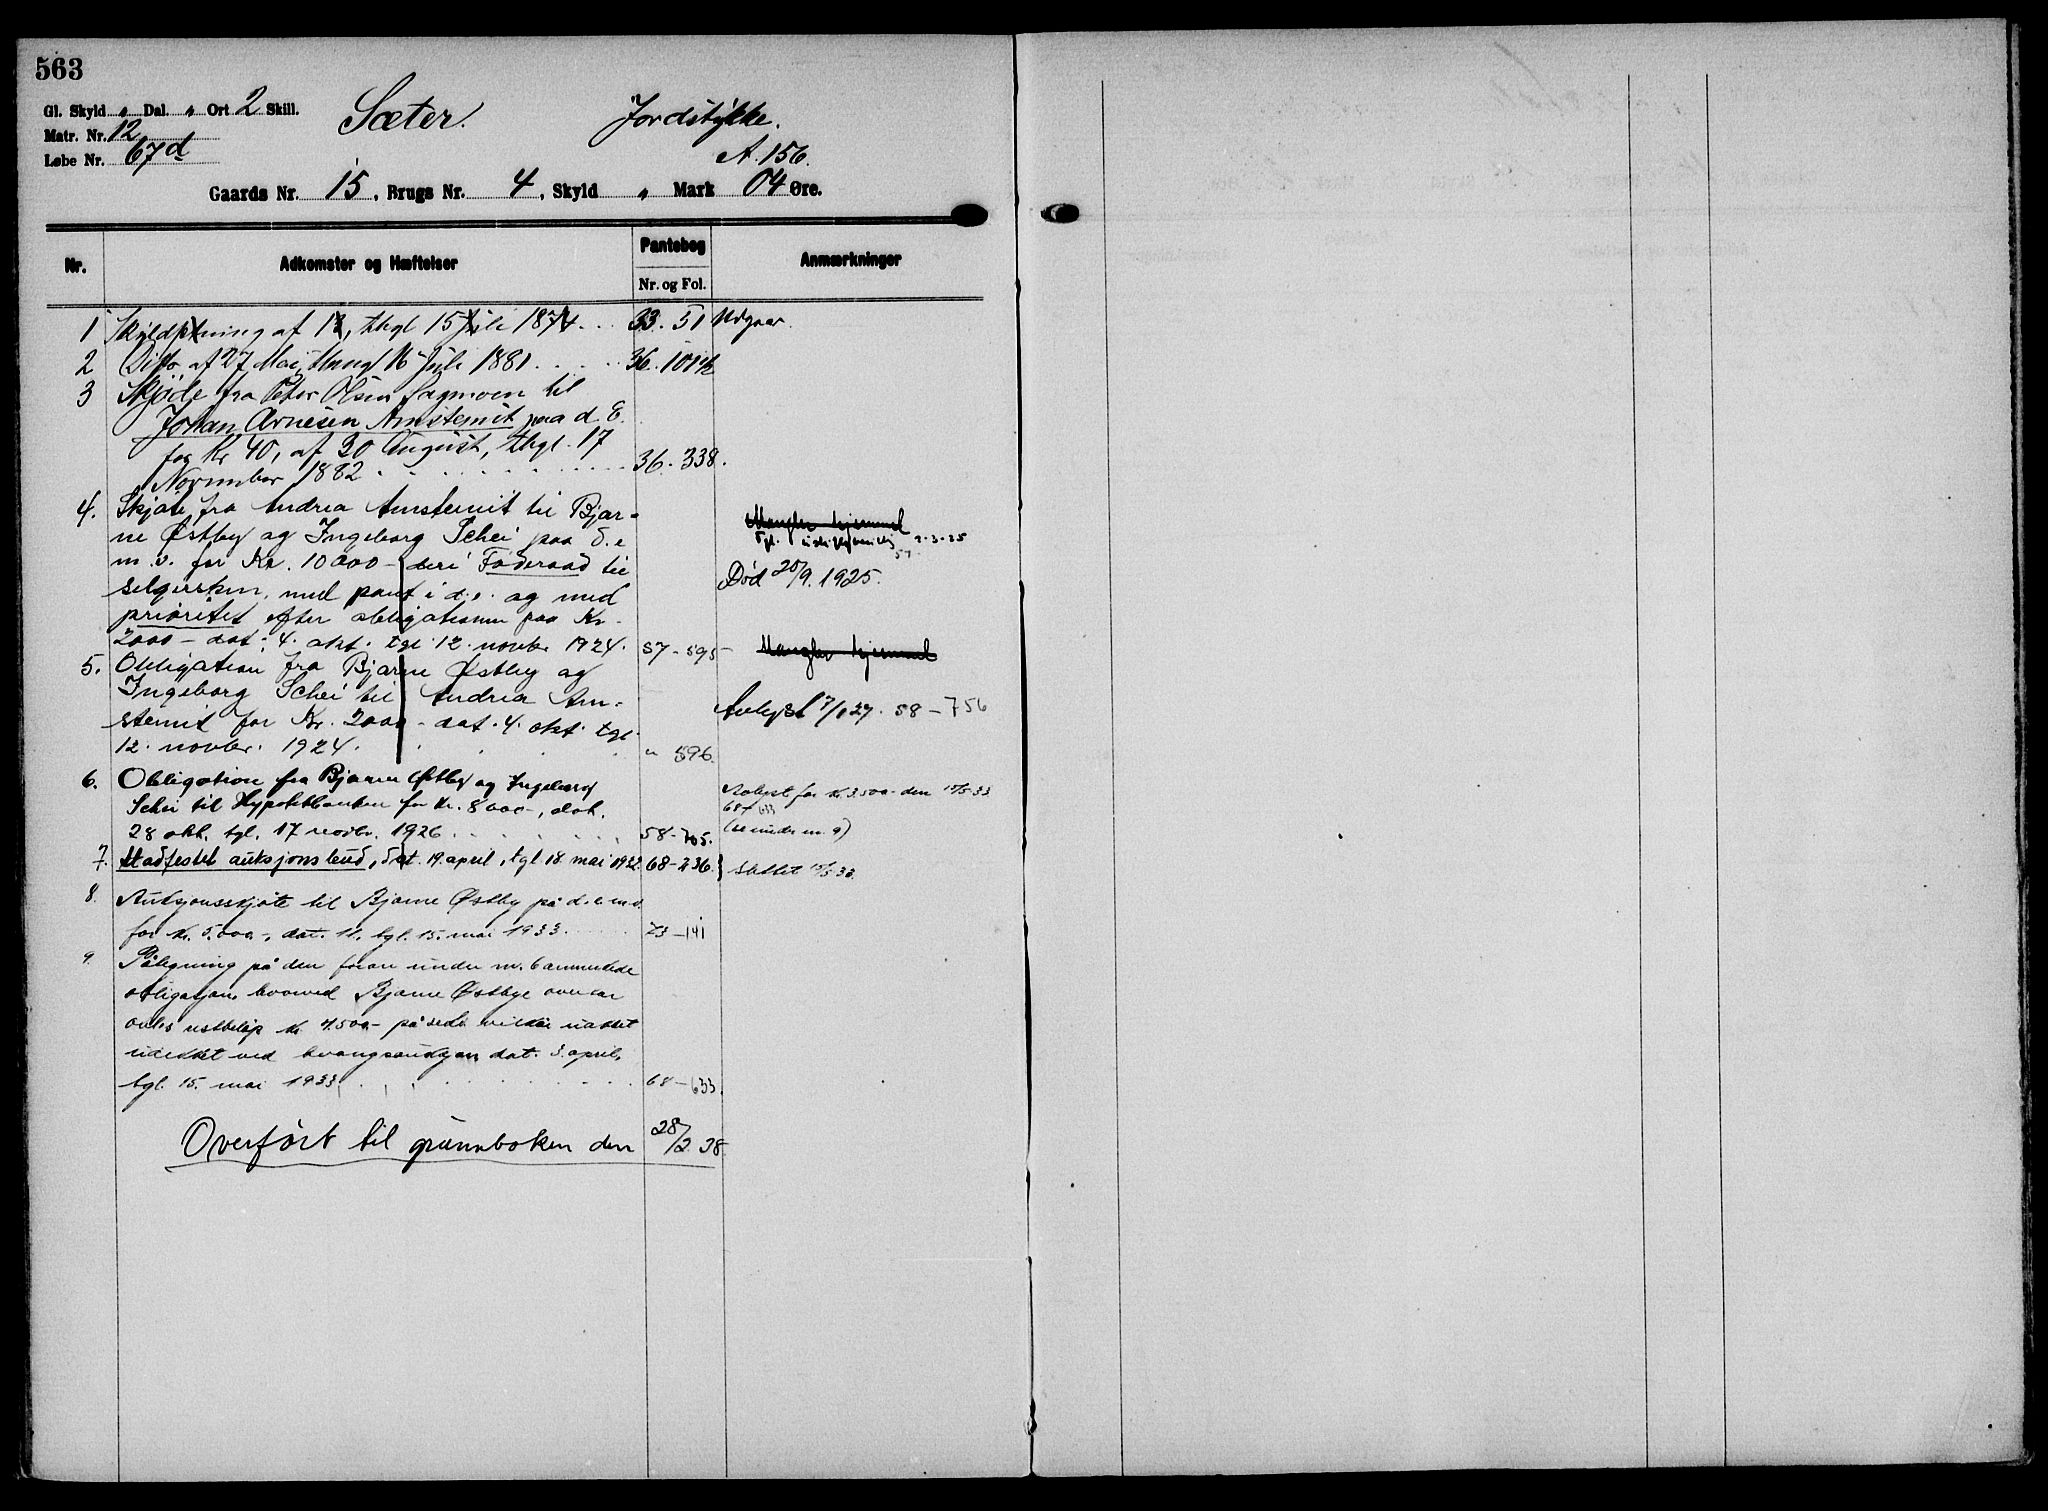 563
Gl. Skyld " Dal. " Ort 2 Skill.
Matr. Nr. 12
Løbe Nr. 67d
Sæter. Jordstykke.
A. 156.
Gaards Nr. 15, Brugs Nr. 4, Skyld " Mark 04 Øre.
Nr. Adkomster og Hæftelser Pantebog Anmærkninger
Nr. og Fol.
1 af 12, thgl 15 Juli 1874 33. 51 Udgaar.
2 Ditto af 27 Mai, 16 Juli 1881 36. 101
3 Skjøde fra Peter Olsen Sagmoen til
Johan Arnesen Amstemit paa d. E.
for Kr 40, af 30 August, thgl. 17
November 1882 36. 338.
4. Skjøte fra Andrea Amstemit til Bjar-
ne Østby og Ingeborg Schei paa d. e
m. v. for Kr. 10000 - deri Føderaad til
selgersken, med pant i d. e. og med
prioritet efter obligationen paa Kr.
2000 - dat. 4. okt. tgl 12. novbr 1924. 57-595
Mangler hjemmel
2-3-25
Død 20/9. 1925.
Mangler hjemmel
5. Obligation fra Bjarne Østby og
Ingeborg Schei til Andrea Am-
stemit for Kr. 2000 - dat. 4. okt. tgl.
12. novbr. 1924. " 596.
Avlyst 7/1 27. 58-756
6. Obligation fra Bjarne Østby og Ingeborg
Schei til Hypotekbanken for kr. 8000-, dat.
28 okt. tgl. 17 novbr. 1926 58-705.
Avlyst for kr. 3500- den 15/5 33
68/633
(se under nr. 9)
7. Stadfestet auksjonsbud, dat. 19. april, tgl 18. mai 1932 68-236. Slettet 15/5 33.
8. Auksjonsskjøte til Bjarne Østby på d. e. m. v.
for kr. 5.000-, dat. 11, tgl. 15. mai 1933. 73-141
9. Påtegning på den foran under nr. 6 anmerkede
obligasjon, hvorved Bjarne Østbye overtar
kr 4.500- på
ved dat. 3. april,
tgl. 15. mai 1933 68-633.
Overført til grunnboken den 28/2 38